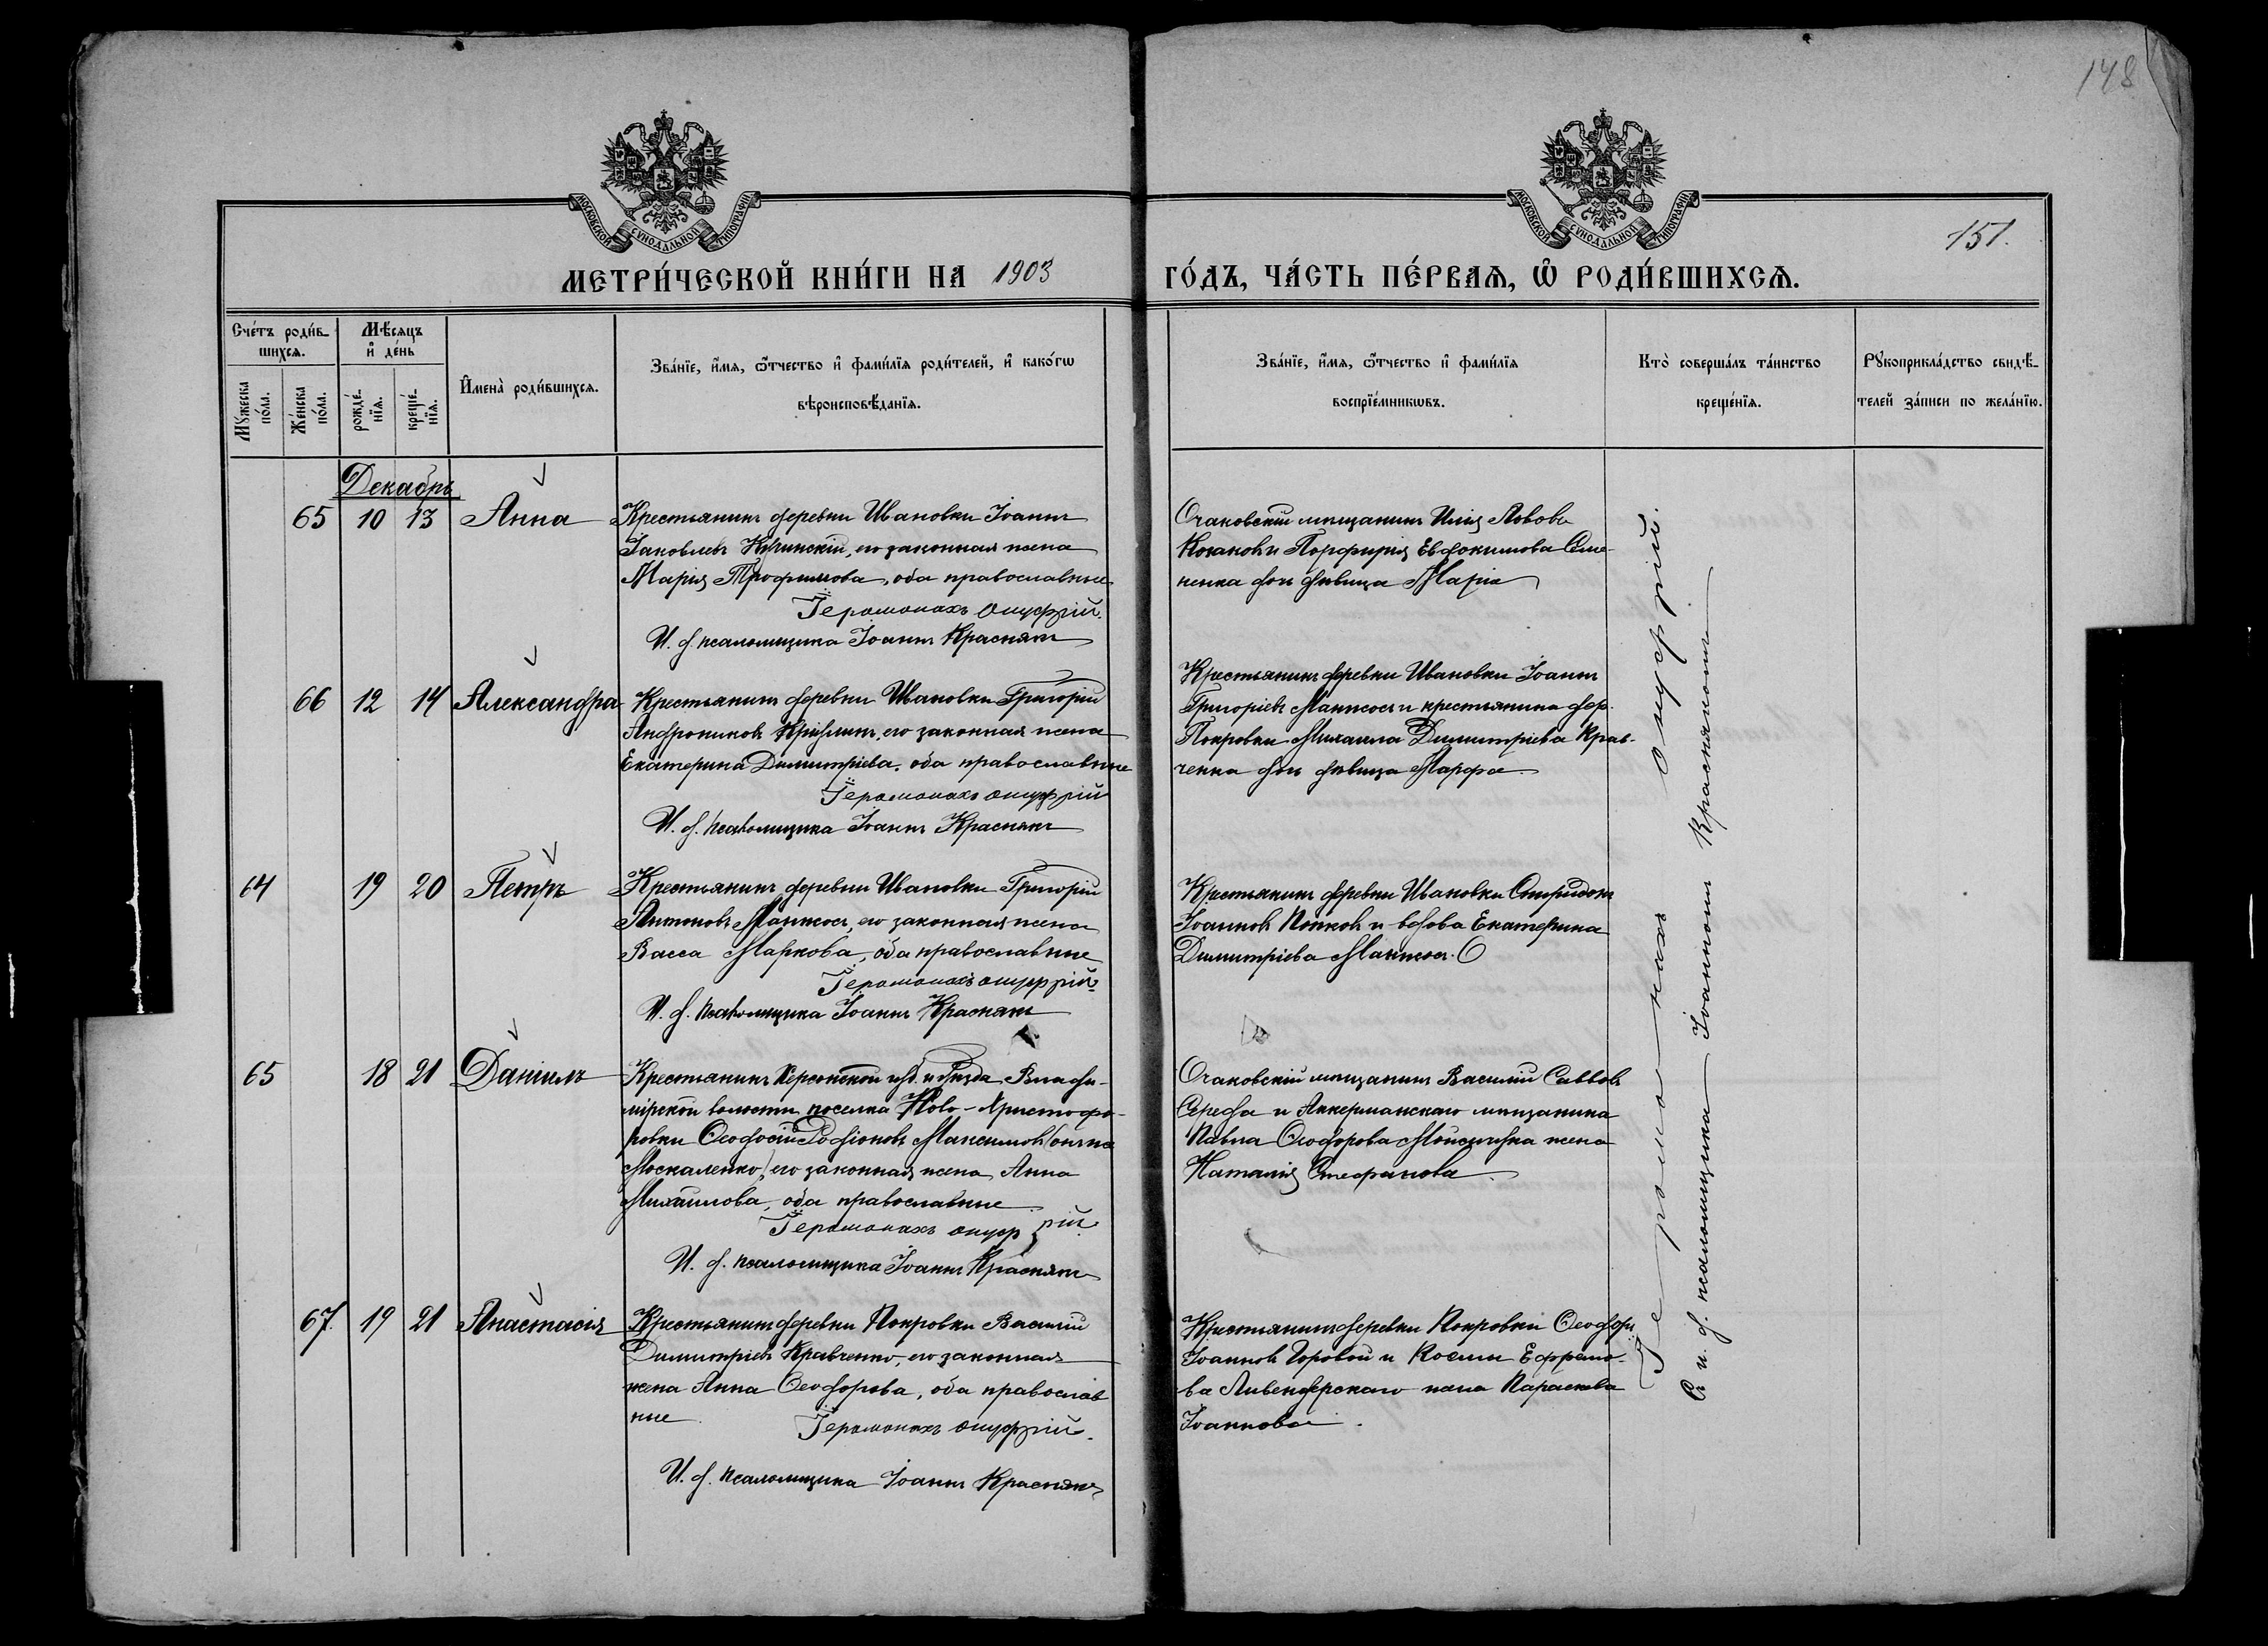 148
МОСКОВСКОЙ СѴНОДАЛЬНОЙ ТИПОГРАФІИ
МОСКОВСКОЙ СѴНОДАЛЬНОЙ ТИПОГРАФІИ
151.
МЕТРИ́ЧЕСКОЙ КНИ́ГИ НА 1903
ГО́ДЪ, ЧА́СТЬ ПЕ́РВАѦ, Ѽ РОДИ́ВШИХСѦ.
Сче́тъ роди́в-
шихсѧ.
Мѣ́сѧцъ
и҆ де́нь
Мꙋ́жеска
по́ла.
Же́нска
по́ла.
рожде́-
нїѧ.
креще́-
нїѧ.
И҆мена̀ роди́вшихсѧ.
Зва́нїе, и҆́мѧ, ѻ҆́тчество и҆ фами́лїѧ роди́телей, и҆ како́гѡ
вѣроисповѣ́данїѧ.
Зва́нїе, и҆́мѧ, ѻ҆́тчество и҆ фами́лїѧ
воспрїе́мникѡвъ.
Кто̀ соверша́лъ та́инство
креще́нїѧ.
Рꙋкоприкла́дство свидѣ́-
телей за́писи по жела́нїю.
Декабрь
65 10 13 Анна
Крестьянинъ деревни Ивановки Іоаннъ
Іаковлевъ его законная жена
Марія Трофимова, оба православные
Іеромонахъ Онуфрій.
И. д. псаломщика Іоаннъ Краснякъ
Очаковскій мѣщанинъ Илія Львовъ
и Порфирія Евдокимова Семе-
ненка дочь дѣвица Марія
66 12 14 Александра
Крестьянинъ деревни Ивановки Григорій
Андрониковъ его законная жена
Екатерина Димитріева, оба православные
Іеромонахъ Онуфрій
И. д. псаломщика Іоаннъ Краснякъ
Крестьянинъ деревни Ивановки Іоаннъ
Григоріевъ Манжосъ и крестьянина дер.
Покровки Михаила Димитріева Крав-
ченка дочь дѣвица Марфа.
64 19 20 Петръ
Крестьянинъ деревни Ивановки Григорій
Антоновъ Манжосъ, его законная жена
Васса Маркова, оба православные
Іеромонахъ Онуфрій.
И. д. псаломщика Іоаннъ Краснякъ
Крестьянинъ деревни Ивановки Спиридонъ
Іоанновъ Попковъ и вдова Екатерина
Димитріева Манжосъ.
65 18 21 Даніилъ
Крестьянинъ Херсонской губ. и уѣзда Влади-
мірской волости поселка Ново-Христофо-
ровки Ѳеодосій Родіоновъ Максимовъ (онъ же
Москаленко), его законная жена Анна
Михаилова, оба православные
Іеромонахъ Онуфрій.
И. д. псаломщика Іоаннъ Краснякъ
Очаковскій мѣщанинъ Василій Саввовъ
Середа и Аккерманскаго мѣщанина
Павла Ѳеодорова жена
Наталія Стефанова.
67. 19 21 Анастасія
Крестьянинъ деревни Покровки Василій
Димитріевъ Кравченко, его законная
жена Анна Ѳеодорова, оба православ
ные
Іеромонахъ Онуфрій.
И. д. псаломщика Іоаннъ Краснякъ
Крестьянинъ деревни Покровки Ѳеодоръ
Іоанновъ Горовой и Космы Ефремо-
ва жена Параскева
Іоаннова.
Іеромонахъ Онуфрій.
Съ и. д. псаломщика Іоанномъ Краснякомъ